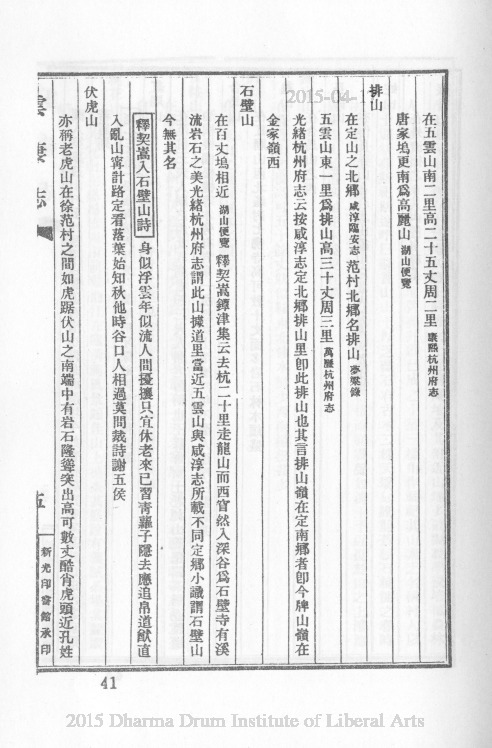 在五雲山南二里高二十五丈周二里康熙杭州府志
唐家塢更南爲高麗山湖山便覽
排山
在定山之北鄉咸淳臨安志范村北鄉名排山夢粱錄
五雲山東一里爲排山高三十丈周三里萬曆杭州府志
光緒杭州府志云按咸淳志定北鄉排山里卽此排山也其言排山嶺在定南鄉者卽今牌山嶺在
金家嶺西
石壁山
在百丈塢相近湖山便覽釋契嵩鐔津集云去杭二十里走龍山而西窅然入深谷爲石壁寺有溪
流岩石之美光緒杭州府志謂此山據道里當近五雲山與咸淳志所載不同定鄉小識謂石壁山
今無其名
釋契嵩入石壁山詩身似浮雲年似流人間擾攘只宜休老來已習靑蘿子隱去應追帛道猷直
入亂山寧計路定看落葉始知秋他時谷口人相過莫問裁詩謝五侯
伏虎山
亦稱老虎山在徐范村之間如虎踞伏山之南端中有岩石隆聳突出高可數丈酷肖虎頭近孔姓
雲棲志
五
新光印書館承印
41
2015-04-
2015 Dharma Drum Institute of Liberal Arts